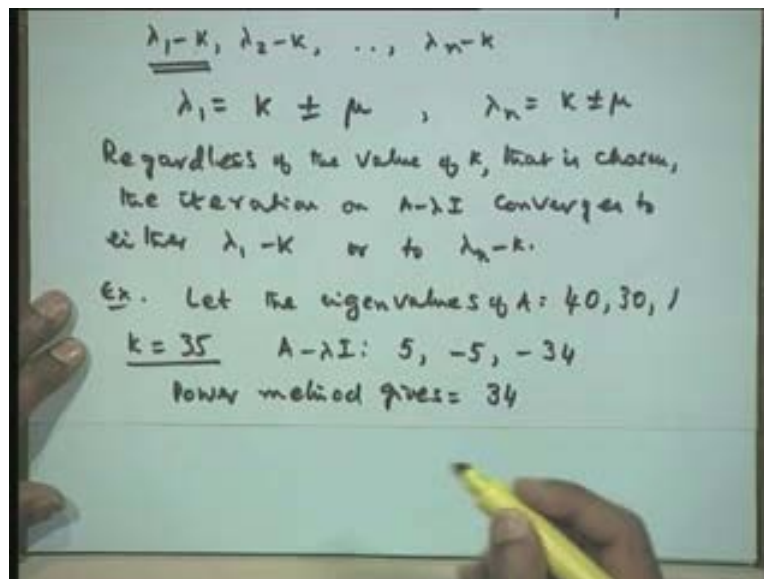 λ₁-K, λ₂-K, .., λₙ-K
λ₁ = K ± μ , λₙ = K ± μ
Regardless of the value of K, that is chosen,
the iteration on A-λI converges to
either λ₁-K or to λₙ-K.
Ex. Let the eigenvalues of A: 40, 30, 1
K = 35 A-λI: 5, -5, -34
Power method gives = 34